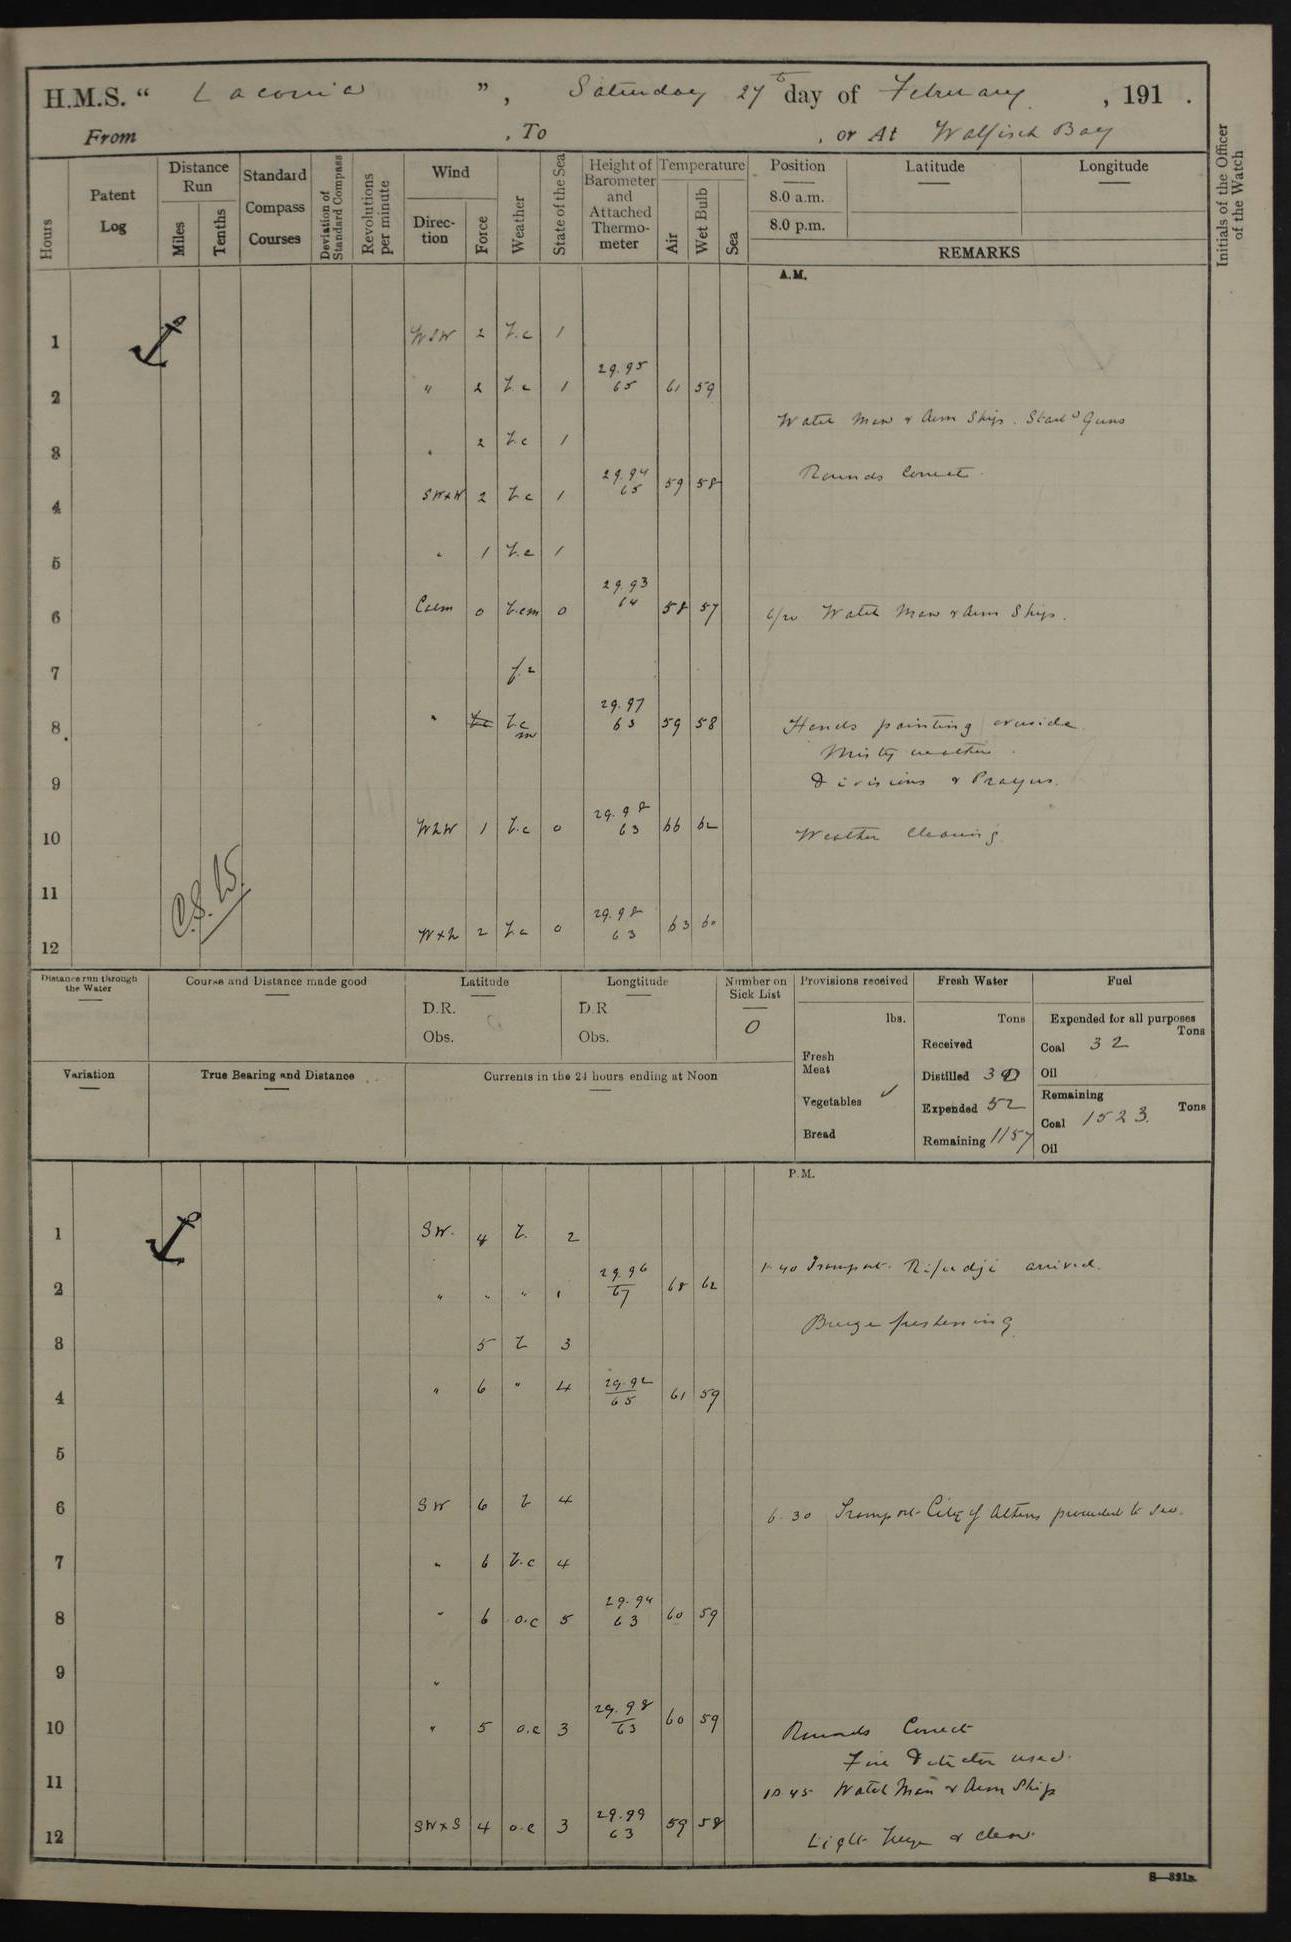 H.M.S. “ Laconia ”, Saturday 27th day of February, 191 .
From , To , or At Walfisch Bay
Hours
Patent Log
Distance Run
Miles
Tenths
Standard Compass Courses
Deviation of Standard Compass
Revolutions per minute
Wind
Direc-tion
Force
Weather
State of the Sea
Height of Barometer and Attached Thermo-meter
Temperature
Air
Wet Bulb
Sea
Position
8.0 a.m.
8.0 p.m.
Latitude
Longitude
REMARKS
Initials of the Officer of the Watch
A.M.
1 WSW 2 b.c 1
2 " 2 b.c 1 29.95 65 61 59
Watch Man & Arm Ships. Starbd Guns
3 " 2 b.c 1
Rounds Correct.
4 SWxW 2 b.c 1 29.94 65 59 58
5 " 1 b.c 1
6 Calm 0 b.c.m 0 29.93 64 58 57 6/20 Watch Man & Arm Ships.
7 f.2
8 " b.c b.c m 29.97 63 59 58 Hands painting outside.
Misty weather.
9 Divisions & Prayers.
10 WSW 1 b.c 0 29.98 63 66 62 Weather Clearing
11
C.S. 15.
12 WxS 2 b.c 0 29.98 63 63 60
Distance run through the Water
Course and Distance made good
Latitude
D.R.
Obs.
Longtitude
D.R
Obs.
Number on Sick List
0
Provisions received
lbs.
Fresh Meat
Vegetables ✓
Bread
Fresh Water
Tons
Received
Distilled 30
Expended 52
Remaining 1157
Fuel
Expended for all purposes
Tons
Coal 32
Oil
Remaining
Tons
Coal 1523.
Oil
Variation
True Bearing and Distance
Currents in the 24 hours ending at Noon
P.M.
1 SW. 4 b. 2
1.40 Transport. Rifudgi arrived.
2 " " " 1 29.96 67 68 62
Breeze freshening
3 5 b 3
4 " 6 " 4 29.92 65 61 59
5
6 SW 6 b 4 6.30 Transport City of Athens proceeded to Sea.
7 " 6 b.c 4
8 " 6 o.c 5 29.94 63 60 59
9 "
10 " 5 o.c 3 29.98 63 60 59 Rounds Correct
Fire Detector used.
11 10.45 Watch Man & Arm Ship
12 SWxS 4 o.c 3 29.99 63 59 58
Light breeze & clear.
S—321B.